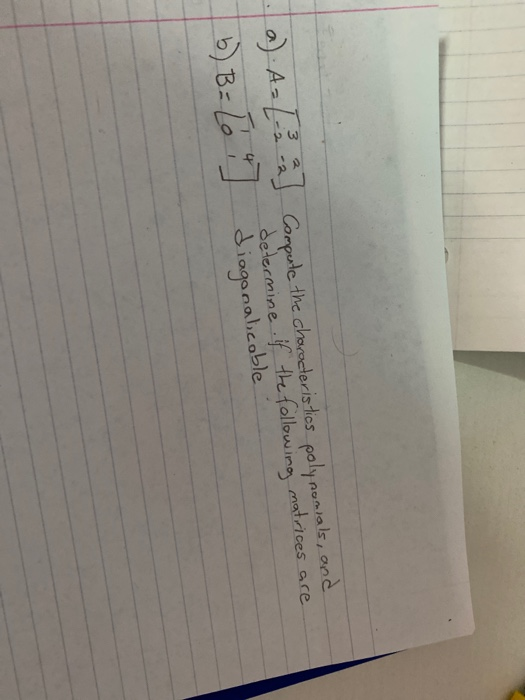 a). A = [ 3 2
-2 -2 ] Compute the characteristics polynomials, and
determine if the following matrices are
b) B = [ 1 4
0 1 ] diagonalicable